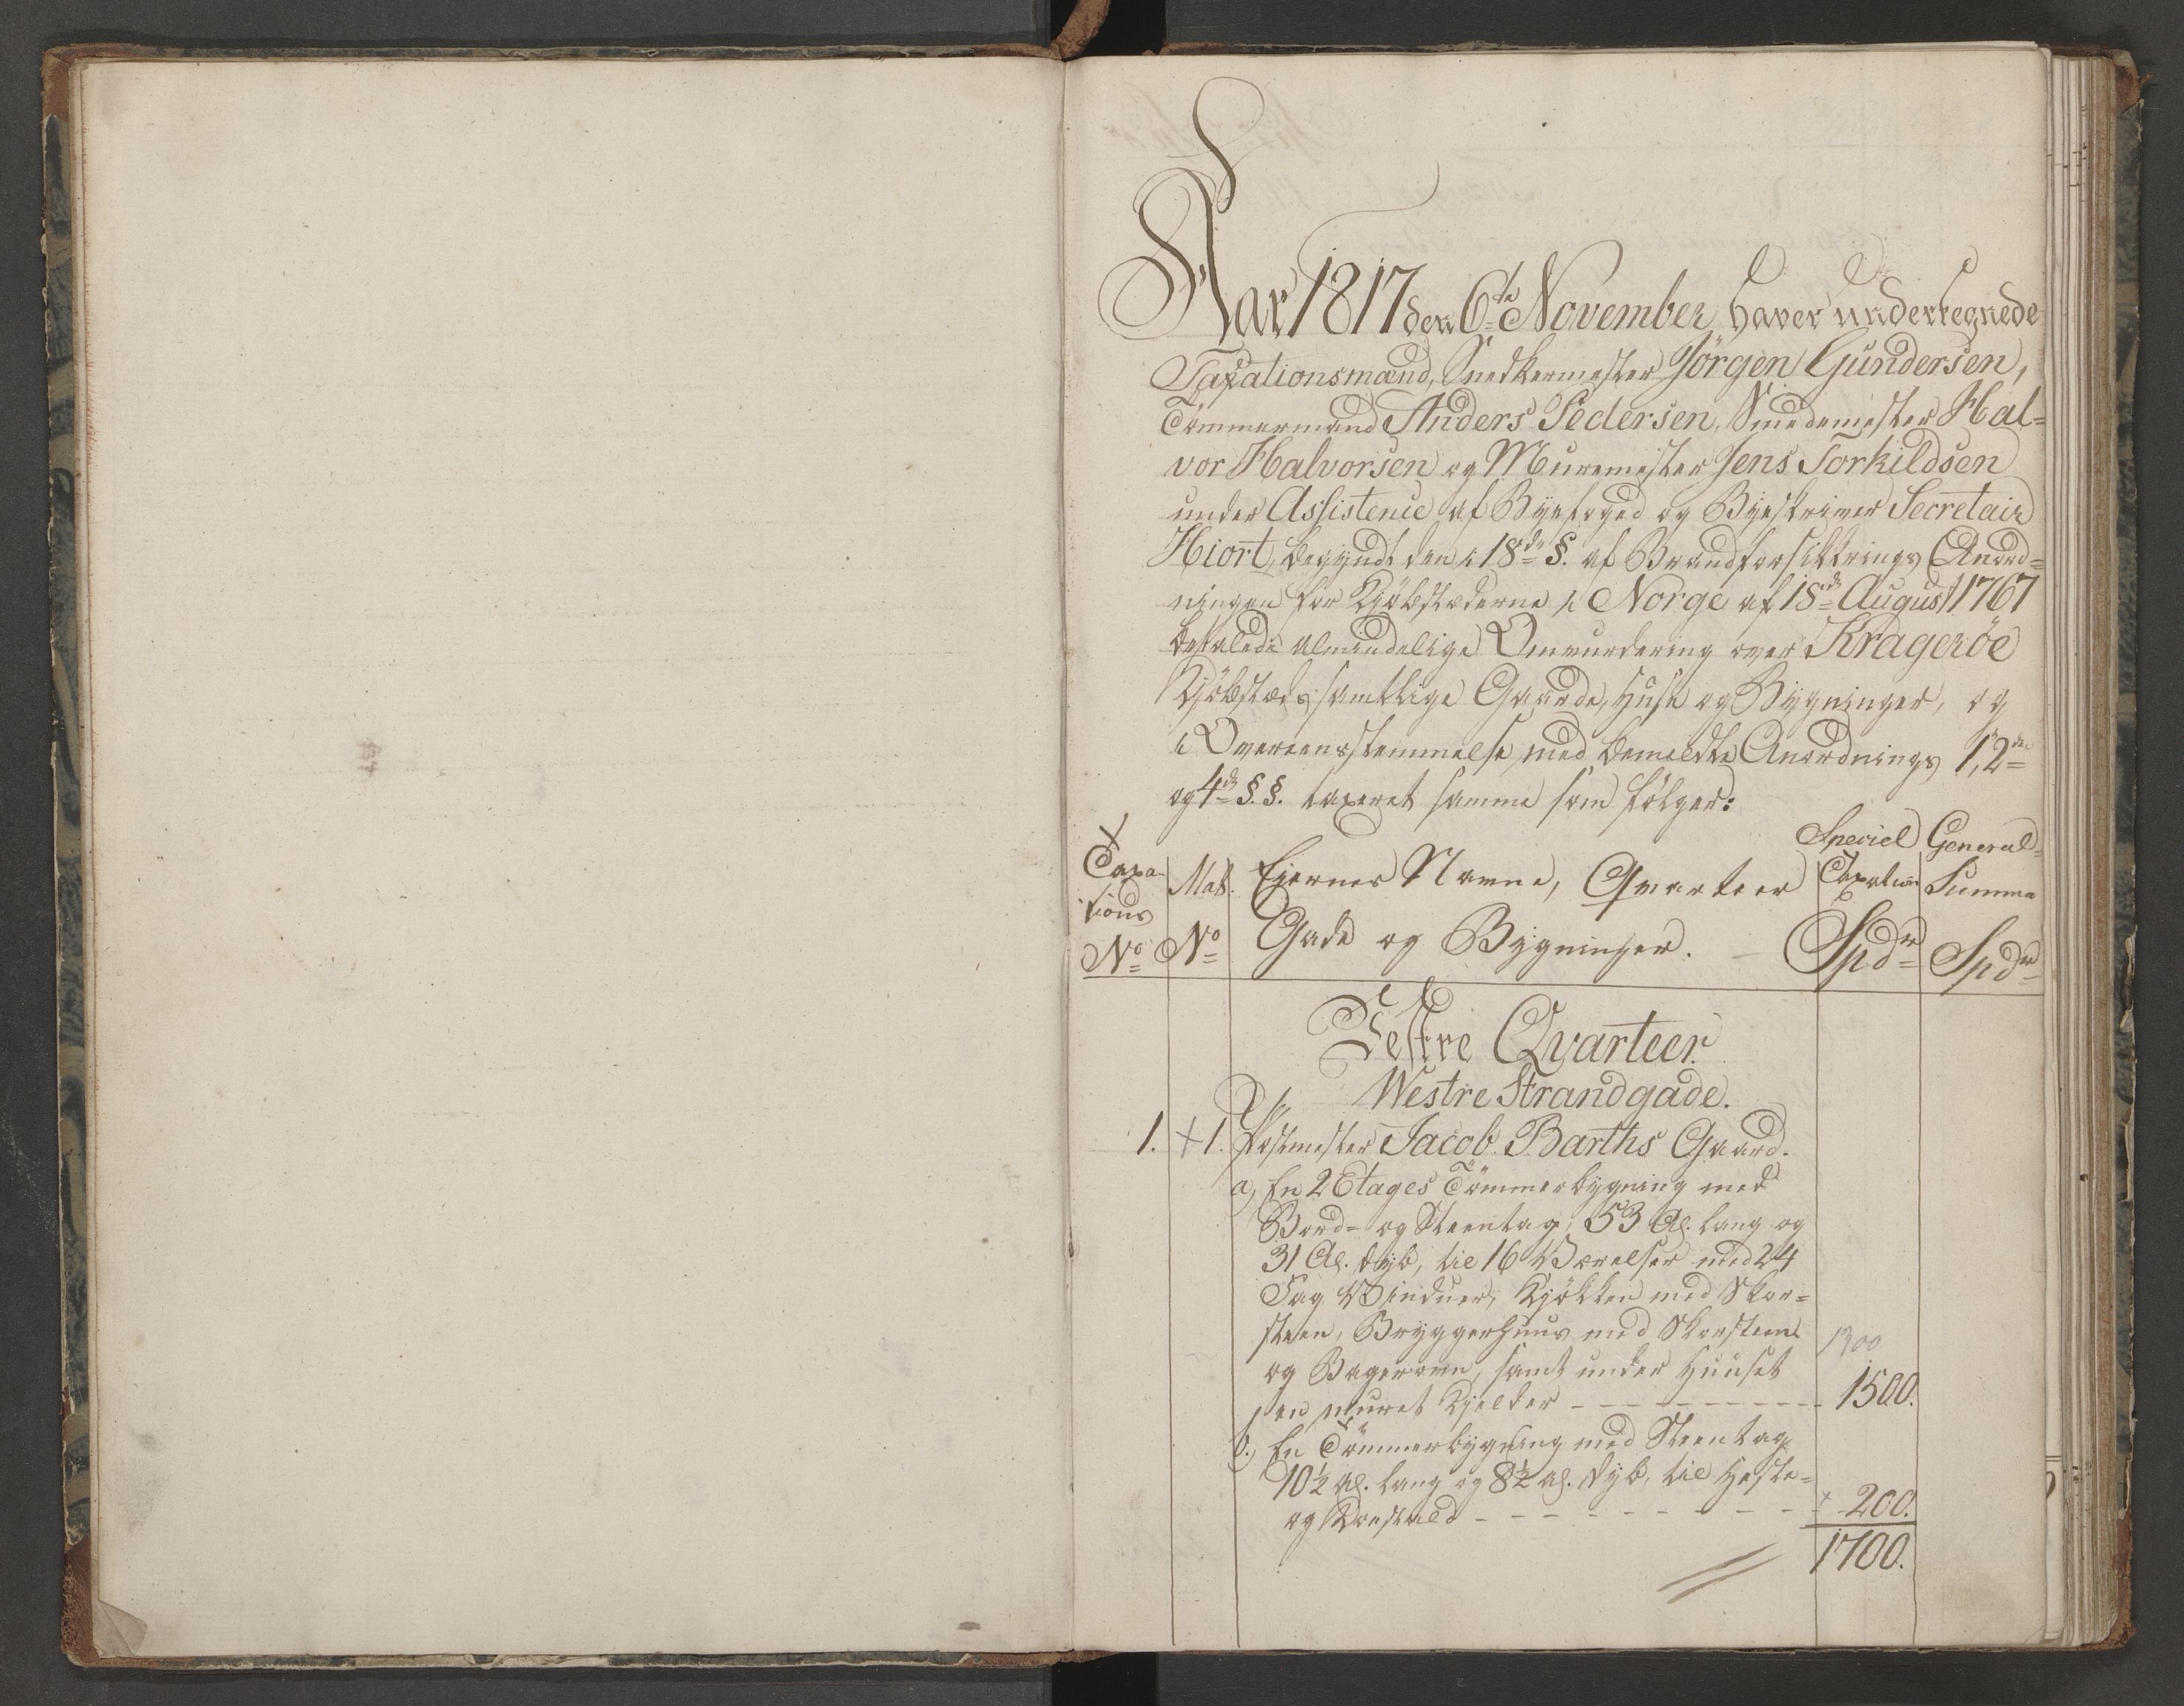 Aar 1817 den 6te November haver undertegnede
Taxationsmænd, Snedkermester Jörgen Gundersen,
Tömmermand Anders Pedersen, Smedemester Hal=
vor Halvorsen og Muurmester Jens Torkildsen
under Assistence af Byefoged og Byeskriver Secretair
Hiort, begyndt den i 18de §. af Brandforsikkrings Anord=
ningen for Kjöbstæderne i Norge af 18de August 1767
befalede almindelige Omvurdering over Krageröe
Kjöbstæds samtlige Gaarde, Huse og Bygninger, og
i Overeensstemmelse med bemeldte Anordnings 1, 2den
og 4de §.§. taxeret samme som fölger:
Taxa-
tions
No
Mat.
No
Eiernes Navne, Qvarteer
Gade og Bygninger.
Speciel
Taxation
Spdr
General-
Summa
Spdr
Vestre Qvarteer
Westre Strandgade.
1. + 1. Postmester Jacob Barths Gaard.
a, En 2 Etages Tömmerbygning med
Bord- og Steentag, 53 Al. lang og
31 Al. dyb, til 16 Værelser med 24
Fag Vinduer, Kjökken med Skor=
steen, Bryggerhuus med Skorsteen
og Bagerovn, samt under Huuset
1300
en muret Kjelder - - - - - - - - - 1500.
b., En Tömmerbygning med Steentag
10½ Al. lang og 8½ Al. dyb, til Heste-
og Koestald - - - - - - - - - + 200.
1700.